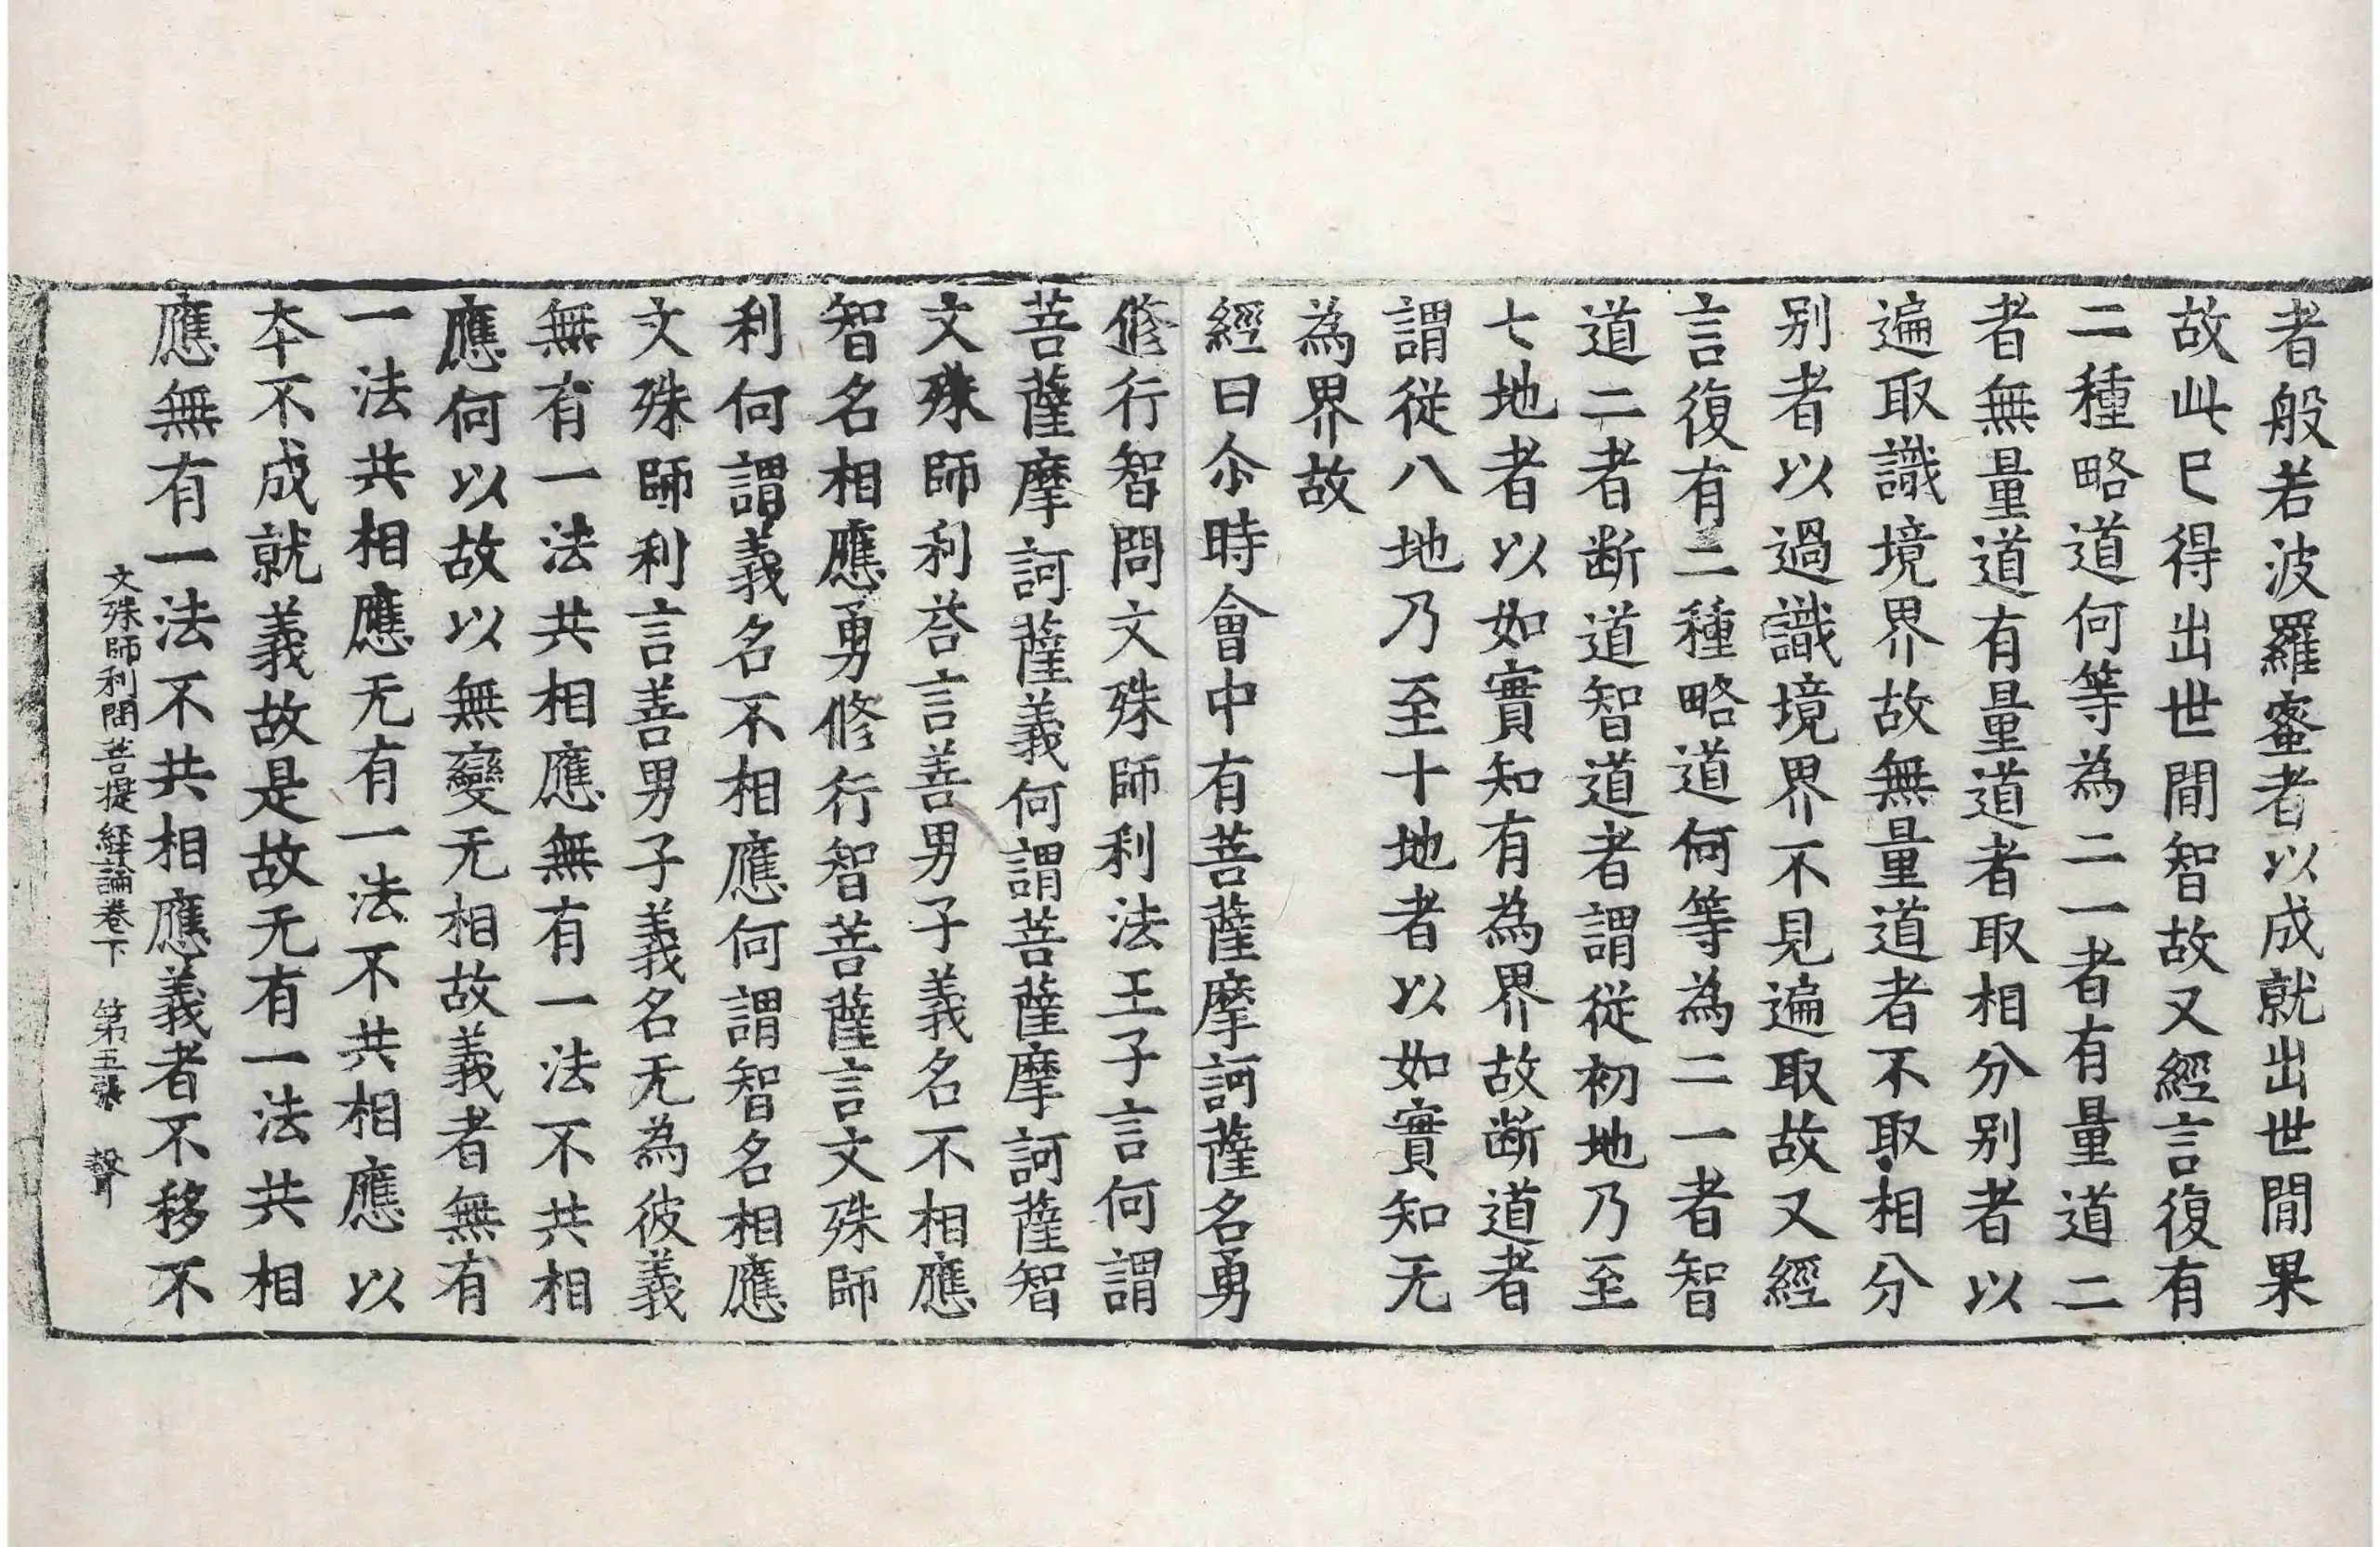 者般若波羅蜜者以成就出世閒果
故此已得出世閒智故又經言復有
二種略道何等為二一者有量道二
者無量道有量道者取相分別者以
遍取識境界故無量道者不取相分
別者以過識境界不見遍取故又經
言復有二種略道何等為二一者智
道二者断道智道者謂從初地乃至
七地者以如實知有為界故断道者
謂從八地乃至十地者以如實知无
為界故
經曰尒時會中有菩薩摩訶薩名勇
修行智問文殊師利法王子言何謂
菩薩摩訶薩義何謂菩薩摩訶薩智
文殊師利荅言善男子義名不相應
智名相應勇修行智菩薩言文殊師
利何謂義名不相應何謂智名相應
文殊師利言善男子義名无為彼義
無有一法共相應無有一法不共相
應何以故以無變无相故義者無有
一法共相應无有一法不共相應以
本不成就義故是故无有一法共相
應無有一法不共相應義者不移不
文殊師利問菩提経論卷下 第五張 聲